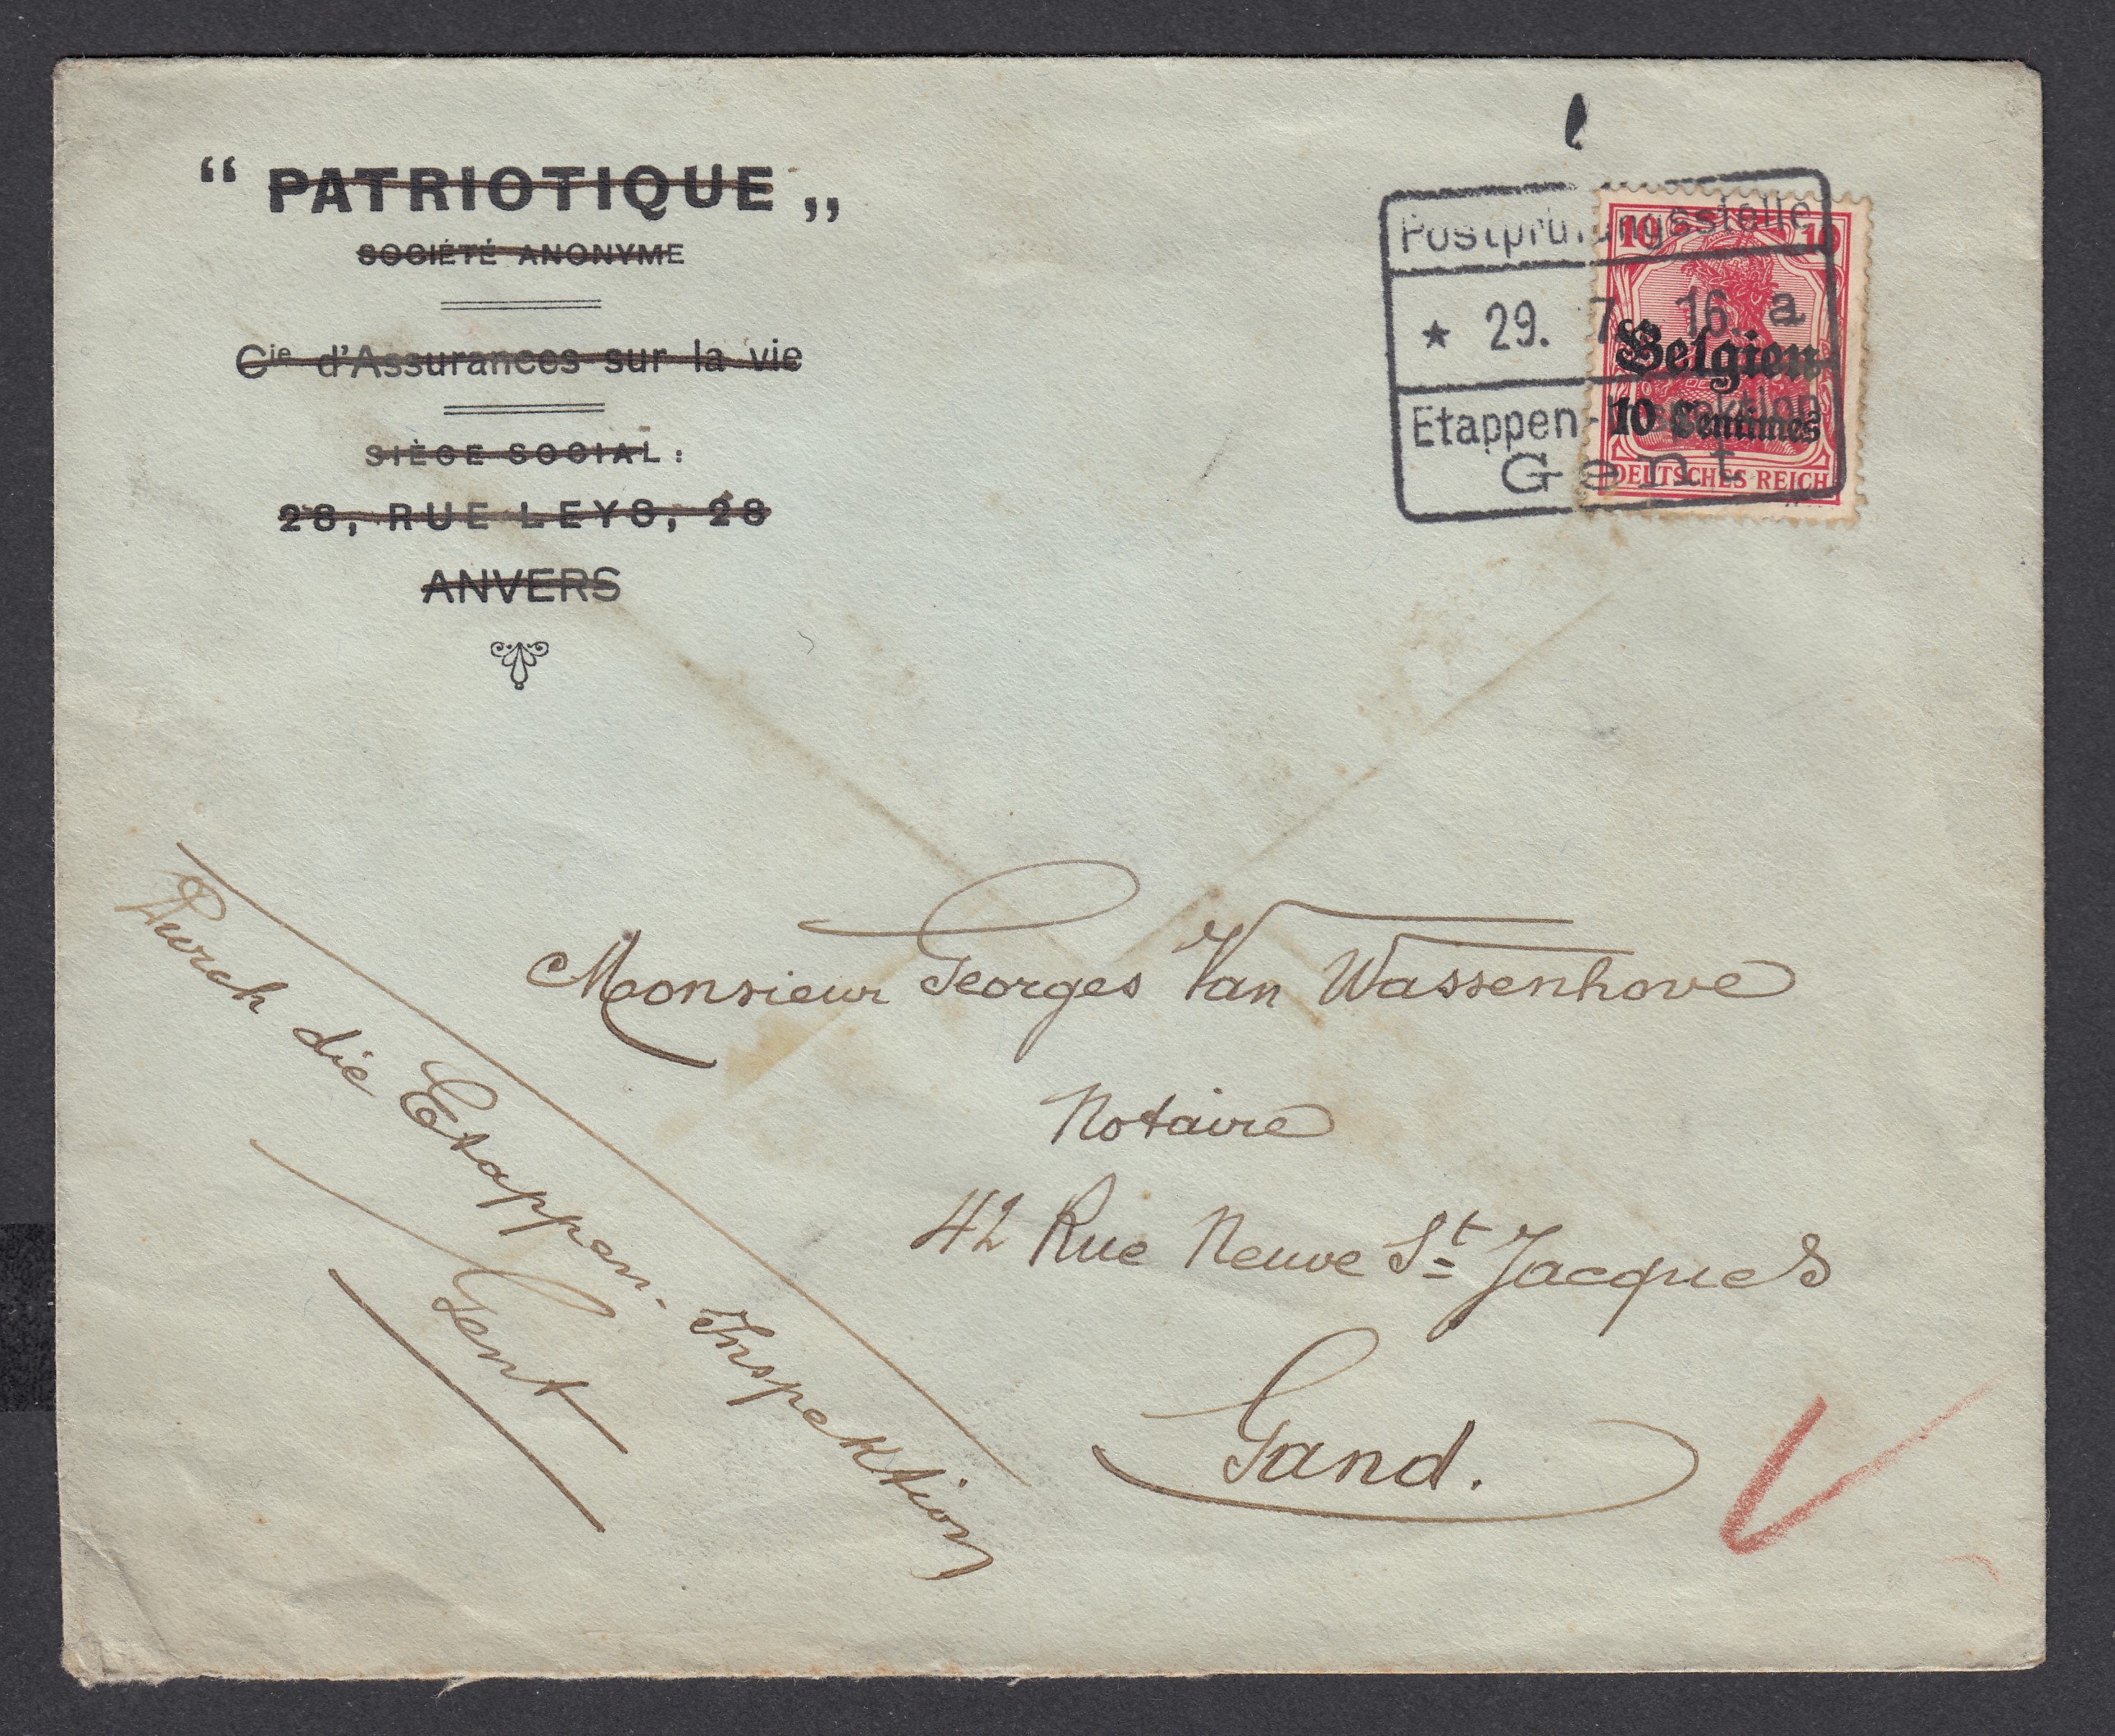 “ PATRIOTIQUE „
SOCIÉTÉ ANONYME
Cie d'Assurances sur la vie
SIÈGE SOCIAL :
28, RUE LEYS, 28
ANVERS
Postprüfungsstelle
★ 29. 7. 16. a
Etappen-Inspektion
Gent
10 10
Belgien
10 Centimes
DEUTSCHES REICH
Monsieur Georges Van Wassenhove
Notaire
42 Rue Neuve St Jacques
Gand.
Durch die Etappen-Inspektion
Gent